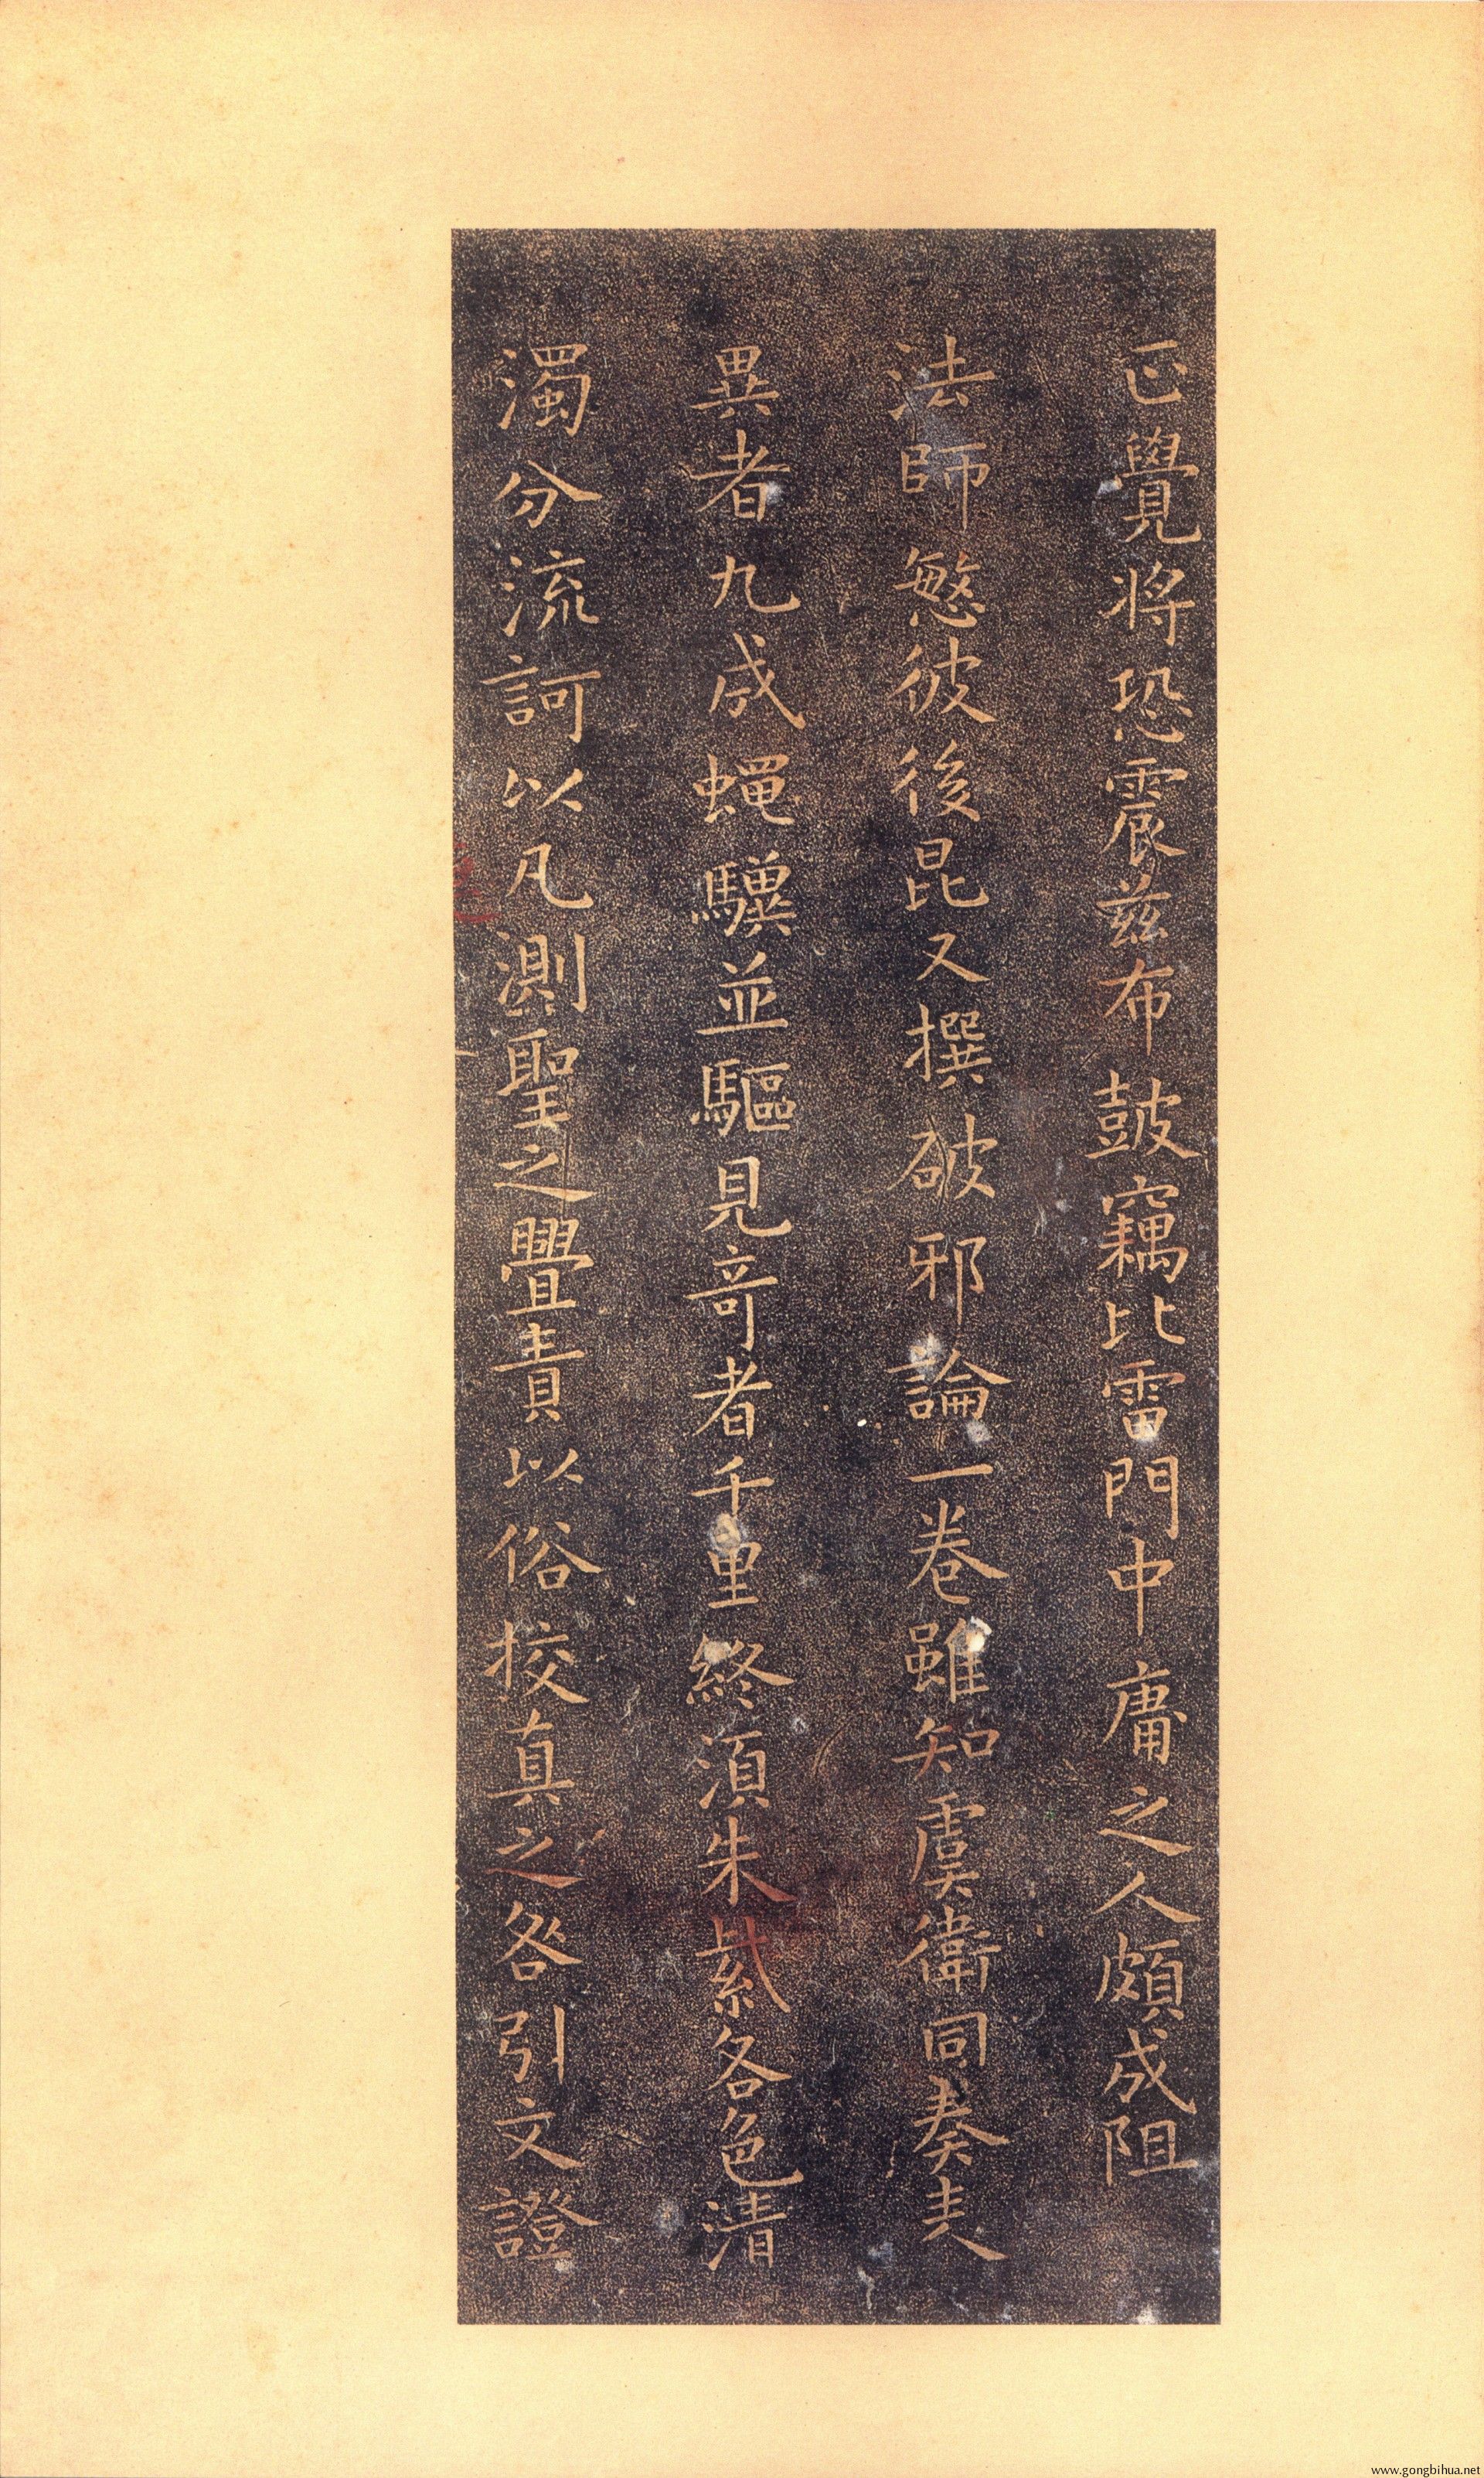 正覺將恐震茲布鼓竊比雷門中庸之人頗成阻
法師慜彼後昆又撰破邪論一卷雖知虞衛同奏夫
異者九成蝇驥並驅見奇者千里終須朱紫各色清
濁分流訶以凡測聖之舋責以俗挍真之咎引文證
www.gongbihua.net